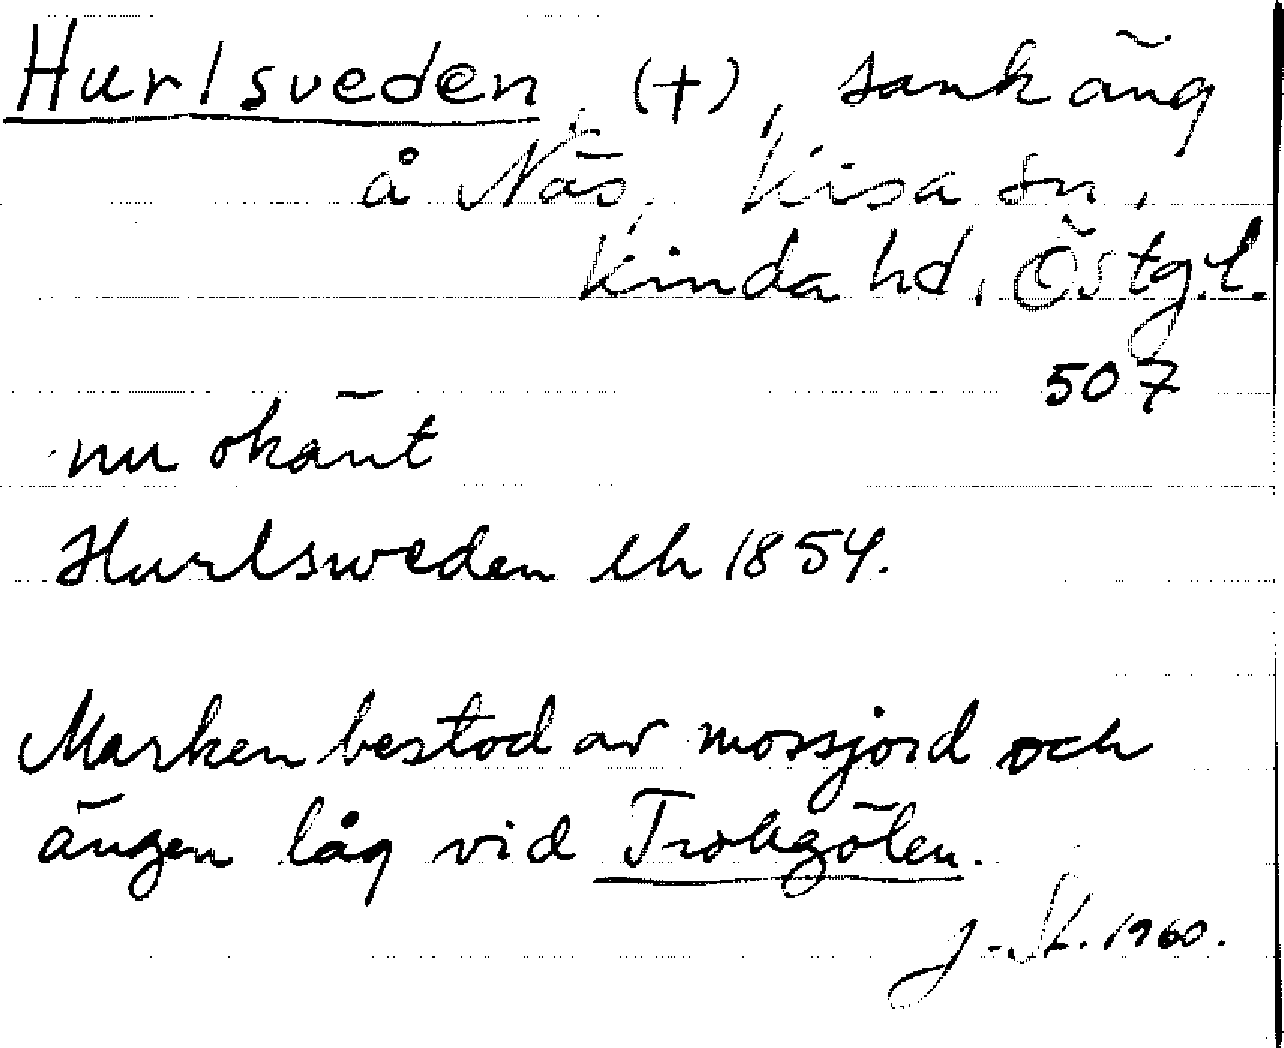 Hurlsveden, (+), sank äng
å Näs, Kisa sn,
Kinda hd, Östg.l.
507
nu okänt
Hurlsweden lh 1854.
Marken bestod av mossjord och
ängen låg vid Trokgölen.
J. St. 1960.